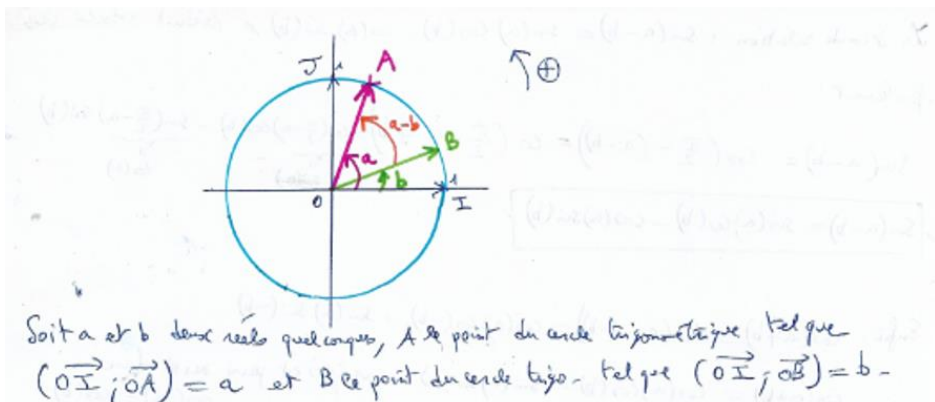 J
1
A
⊕
a-b
B
a
b
O
1
I
Soit a et b deux réels quelconques, A le point du cercle trigonométrique tel que
(OI ; OA) = a et B le point du cercle trigo. tel que (OI ; OB) = b -